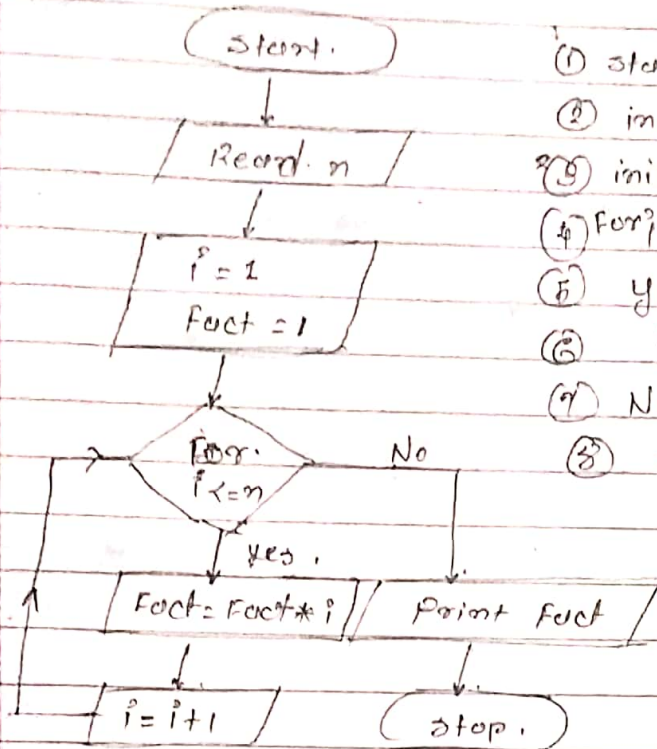 Start.
Read n
i = 1
Fact = 1
For.
i <= n
No
yes.
Fact = Fact * i
Print Fact
i = i+1
Stop.
① sta
② in
③ ini
④ For i
⑤ y
⑥
⑦ N
⑧